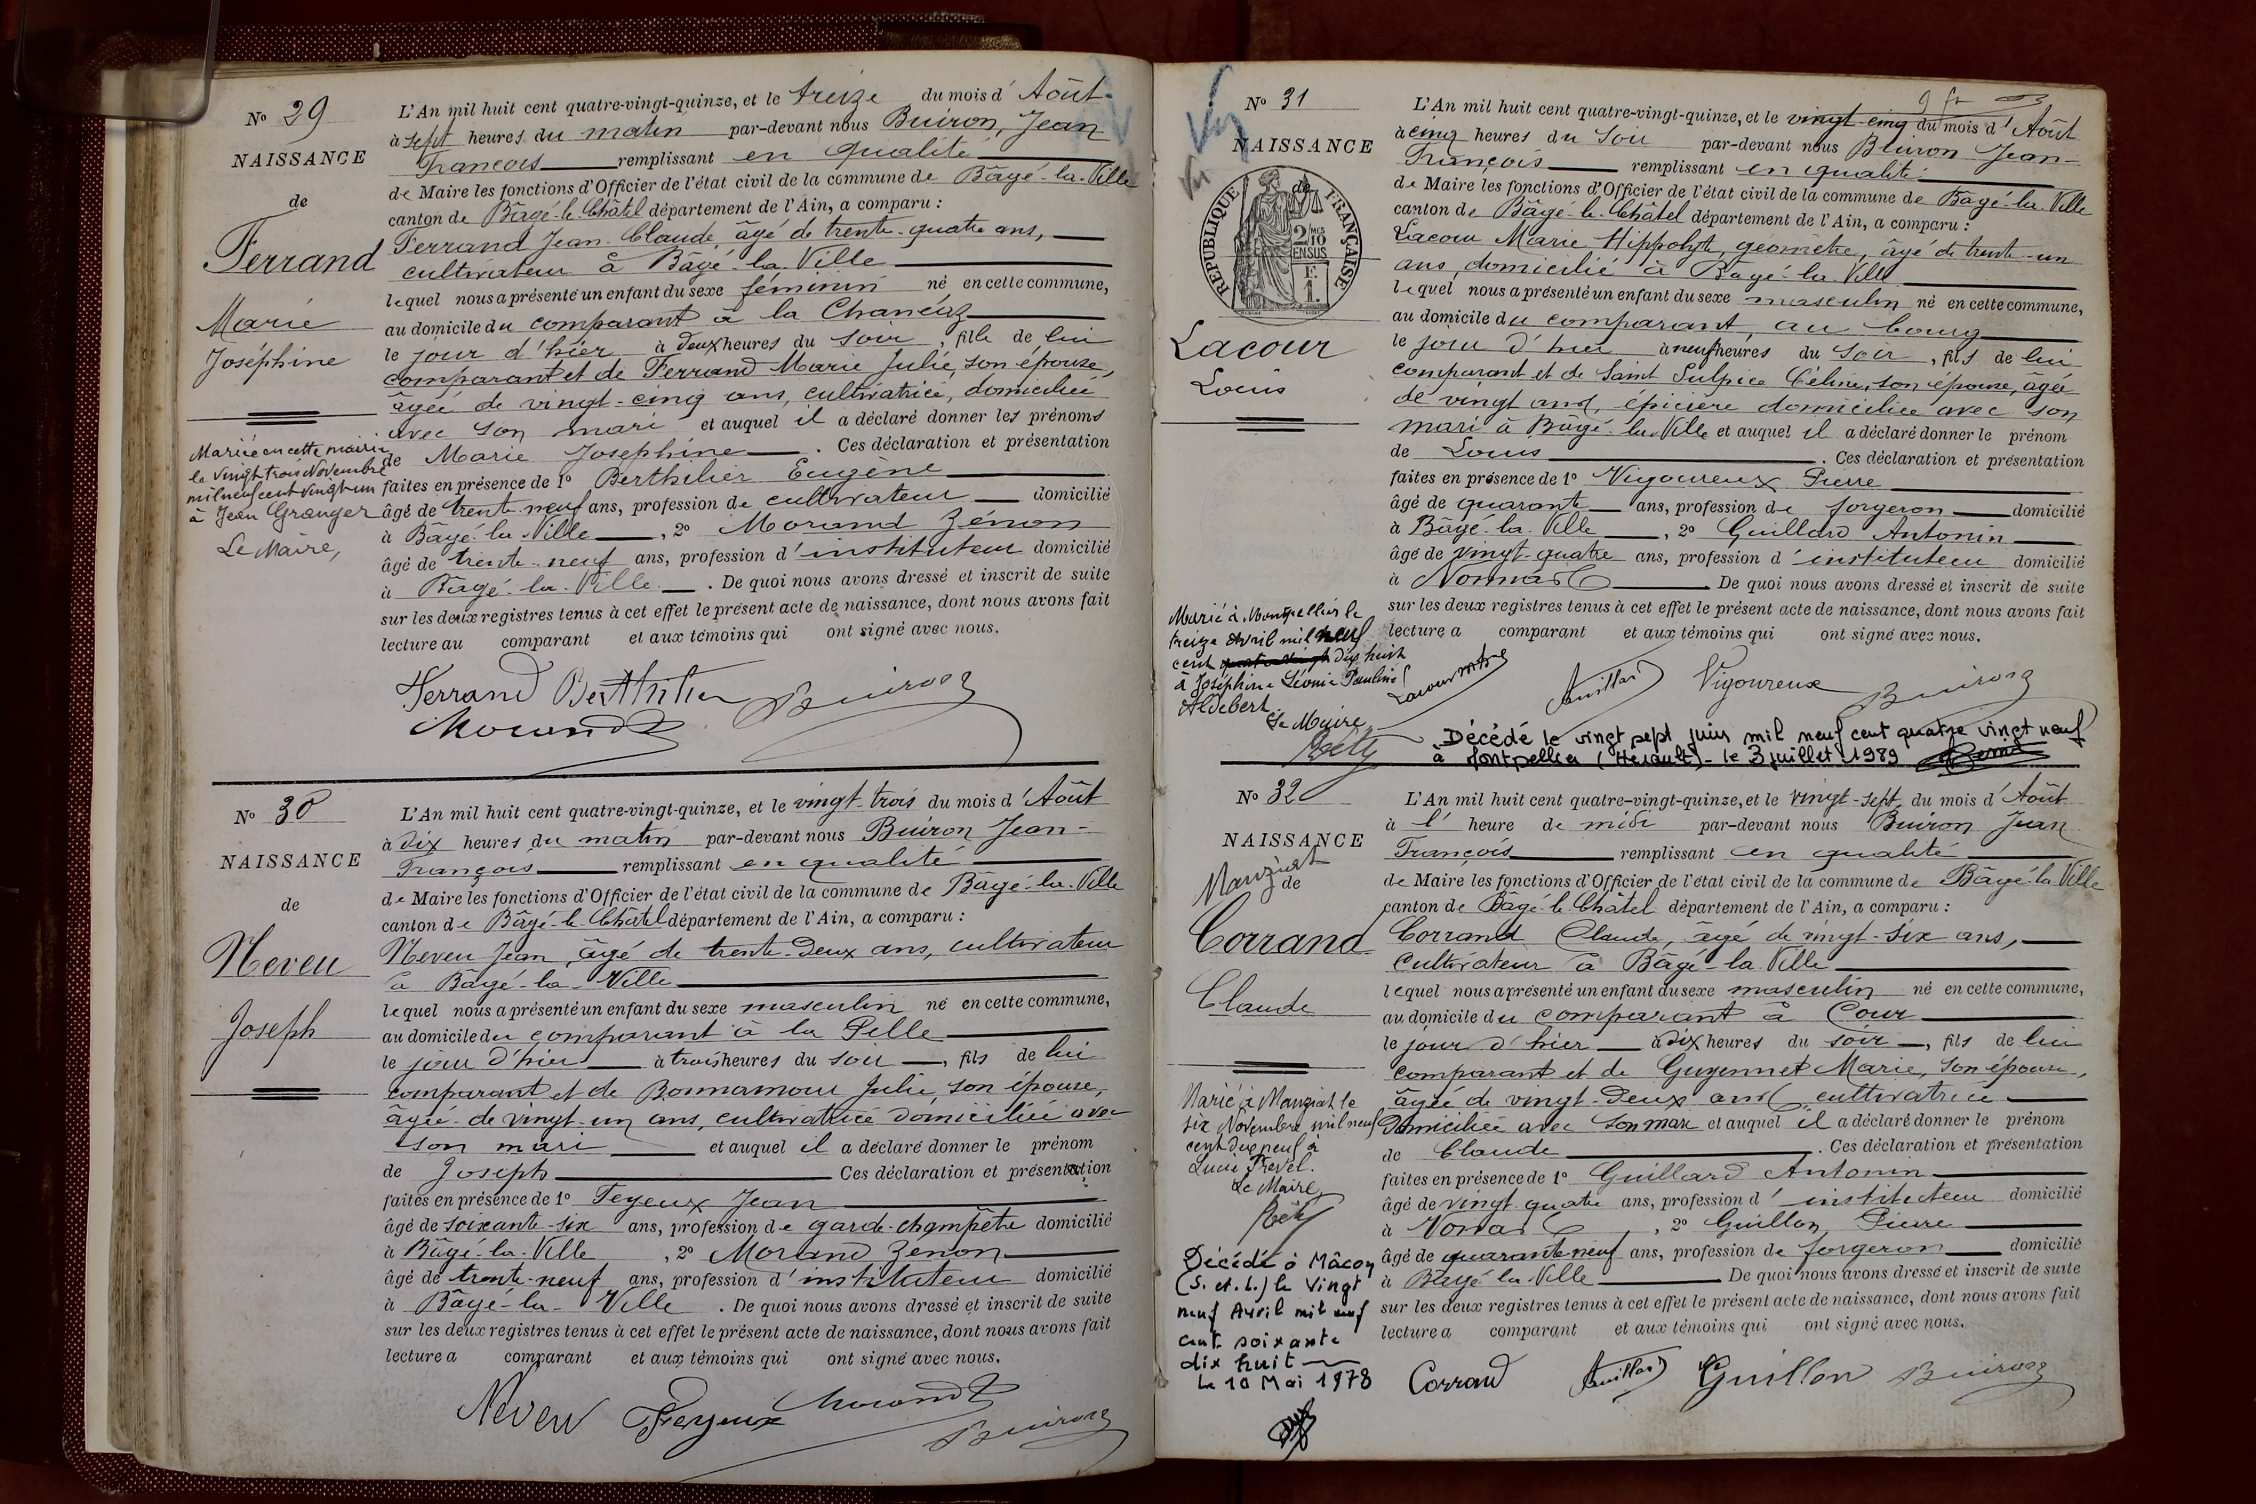 No 29
NAISSANCE
de
Ferrand
Marie
Joséphine
Mariée en cette mairie
le vingt trois Novembre
mil neuf cent vingt un
à Jean Granger
Le Maire,
L'An mil huit cent quatre-vingt-quinze, et le treize du mois d'Août
à sept heures du matin par-devant nous Buiron, Jean
François remplissant en qualité
de Maire les fonctions d'Officier de l'état civil de la commune de Bâgé-la-Ville
canton de Bâgé-le-Châtel département de l'Ain, a comparu :
Ferrand Jean-Claude, âgé de trente-quatre ans,
cultivateur à Bâgé-la-Ville
lequel nous a présenté un enfant du sexe féminin né en cette commune,
au domicile du comparant à la
le jour d'hier à deux heures du soir, fille de lui
comparant et de Ferrand Marie Julie, son épouse,
âgée de vingt-cinq ans, cultivatrice, domiciliée
avec son mari et auquel il a déclaré donner les prénoms
de Marie Joséphine. Ces déclaration et présentation
faites en présence de 1o Berthilier Eugène
âgé de trente-neuf ans, profession de cultivateur domicilié
à Bâgé-la-Ville, 2o Morand Zénon
âgé de trente-neuf ans, profession d'instituteur domicilié
à Bâgé-la-Ville. De quoi nous avons dressé et inscrit de suite
sur les deux registres tenus à cet effet le présent acte de naissance, dont nous avons fait
lecture au comparant et aux témoins qui ont signé avec nous.
Ferrand Berthilier Buiron
Morand
No 30
NAISSANCE
de
Neveu
Joseph
L'An mil huit cent quatre-vingt-quinze, et le vingt-trois du mois d'Août
à dix heures du matin par-devant nous Buiron Jean-
François remplissant en qualité
de Maire les fonctions d'Officier de l'état civil de la commune de Bâgé-la-Ville
canton de Bâgé-le-Châtel département de l'Ain, a comparu :
Neveu Jean, âgé de trente-deux ans, cultivateur
à Bâgé-la-Ville
lequel nous a présenté un enfant du sexe masculin né en cette commune,
au domicile du comparant à la
le jour d'hier à trois heures du soir, fils de lui
comparant et de Bonnamour Julie, son épouse,
âgée de vingt-un ans, cultivatrice domiciliée avec
son mari et auquel il a déclaré donner le prénom
de Joseph Ces déclaration et présentation
faites en présence de 1o Feyeux Jean
âgé de soixante-six ans, profession de garde-champêtre domicilié
à Bâgé-la-Ville, 2o Morand Zénon
âgé de trente-neuf ans, profession d'instituteur domicilié
à Bâgé-la-Ville. De quoi nous avons dressé et inscrit de suite
sur les deux registres tenus à cet effet le présent acte de naissance, dont nous avons fait
lecture a comparant et aux témoins qui ont signé avec nous.
Neveu Feyeux Morand
Buiron
No 31
NAISSANCE
de
RÉPUBLIQUE FRANÇAISE
2/10 EN SUS
F. 1.
Lacour
Louis
Marié à Montpellier le
treize Avril mil neuf
cent quatre vingt dix huit
à Joséphine Léonie Pauline
Aldebert
Le Maire
L'An mil huit cent quatre-vingt-quinze, et le vingt-cinq du mois d'Août
à cinq heures du soir par-devant nous Buiron Jean-
François remplissant en qualité
de Maire les fonctions d'Officier de l'état civil de la commune de Bâgé-la-Ville
canton de Bâgé-le-Châtel département de l'Ain, a comparu :
Lacour Marie Hippolyte, géomètre, âgé de trente-un
ans, domicilié à Bâgé-la-Ville
lequel nous a présenté un enfant du sexe masculin né en cette commune,
au domicile du comparant, au bourg
le jour d'hier à neuf heures du soir, fils de lui
comparant et de Saint Sulpice Céline, son épouse, âgée
de vingt ans, épicière domiciliée avec son
mari à Bâgé-la-Ville et auquel il a déclaré donner le prénom
de Louis. Ces déclaration et présentation
faites en présence de 1o Vigoureux Pierre
âgé de quarante ans, profession de forgeron domicilié
à Bâgé-la-Ville, 2o Guillard Antonin
âgé de vingt-quatre ans, profession d'instituteur domicilié
à Vonnas De quoi nous avons dressé et inscrit de suite
sur les deux registres tenus à cet effet le présent acte de naissance, dont nous avons fait
lecture a comparant et aux témoins qui ont signé avec nous.
Lacour Guillard Vigoureux Buiron
Décédé le vingt sept juin mil neuf cent quatre vingt neuf
à Montpellier (Hérault) - le 3 juillet 1989
No 32
NAISSANCE
Manziat
de
Corrand
Claude
Marié à Manziat le
six Novembre mil neuf
cent dix neuf à
Lucie Prevel.
Le Maire
Décédé à Mâcon
(S. et. L.) le vingt
neuf Avril mil neuf
cent soixante
dix huit
Le 10 Mai 1978
L'An mil huit cent quatre-vingt-quinze, et le vingt-sept du mois d'Août
à l'heure de midi par-devant nous Buiron Jean
François remplissant en qualité
de Maire les fonctions d'Officier de l'état civil de la commune de Bâgé-la-Ville
canton de Bâgé-le-Châtel département de l'Ain, a comparu :
Corrand Claude, âgé de vingt-six ans,
cultivateur à Bâgé-la-Ville
lequel nous a présenté un enfant du sexe masculin né en cette commune,
au domicile du comparant à Cour
le jour d'hier à dix heures du soir, fils de lui
comparant et de Guyennet Marie, son épouse,
âgée de vingt-deux ans, cultivatrice
domiciliée avec son mari et auquel il a déclaré donner le prénom
de Claude. Ces déclaration et présentation
faites en présence de 1o Guillard Antonin
âgé de vingt-quatre ans, profession d'instituteur domicilié
à Vonnas, 2o Guillon Pierre
âgé de quarante-neuf ans, profession de forgeron domicilié
à Bâgé-la-Ville De quoi nous avons dressé et inscrit de suite
sur les deux registres tenus à cet effet le présent acte de naissance, dont nous avons fait
lecture a comparant et aux témoins qui ont signé avec nous.
Corrand Guillard Guillon Buiron